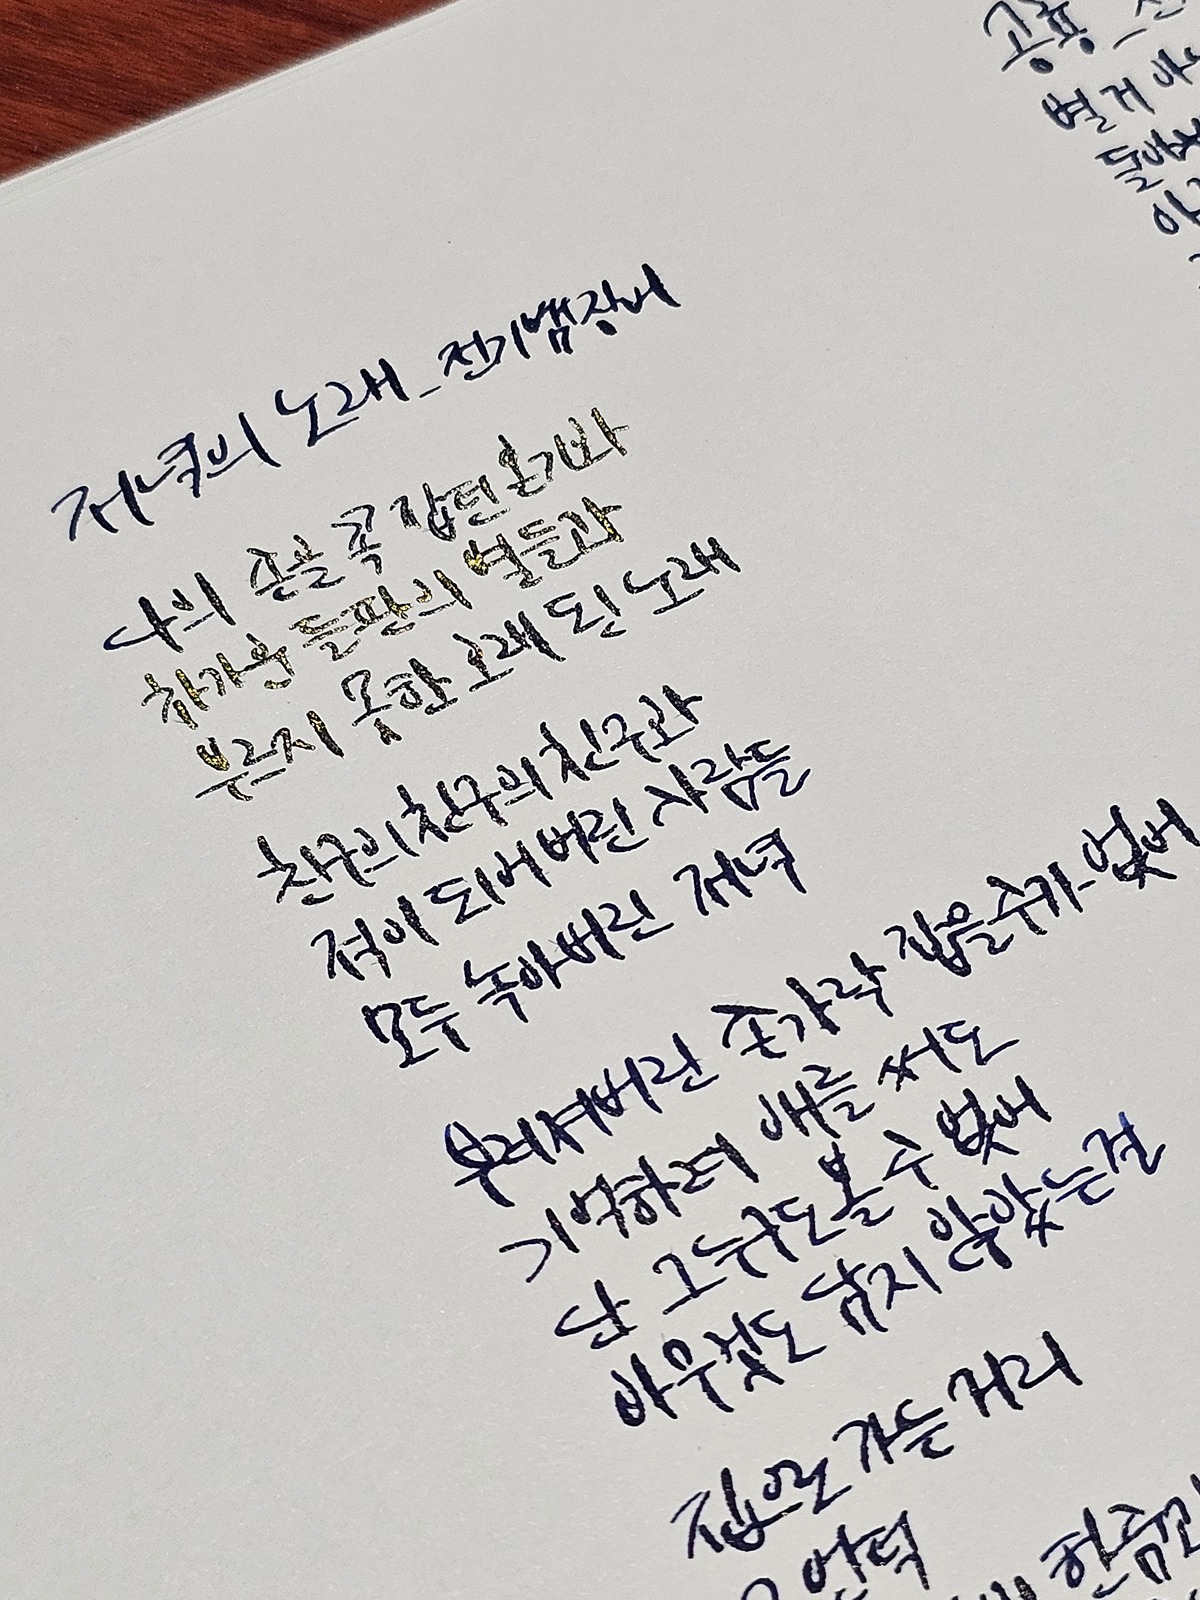 저녁의 노래_전기뱀장어
나의 손을 꼭 잡던 온기와
차가운 들판의 별들과
부르지 못한 오래 된 노래
친구의 친구의 친구와
적이 되어버린 사람들
모두 녹아버린 저녁
부러져버린 손가락 집을수가 없어
기억하려 애를 써도
난 그 누구도 볼 수 없어
아무것도 남지 않았는걸
집으로 가는 거리
언덕
한줌의
공룡_
별 거